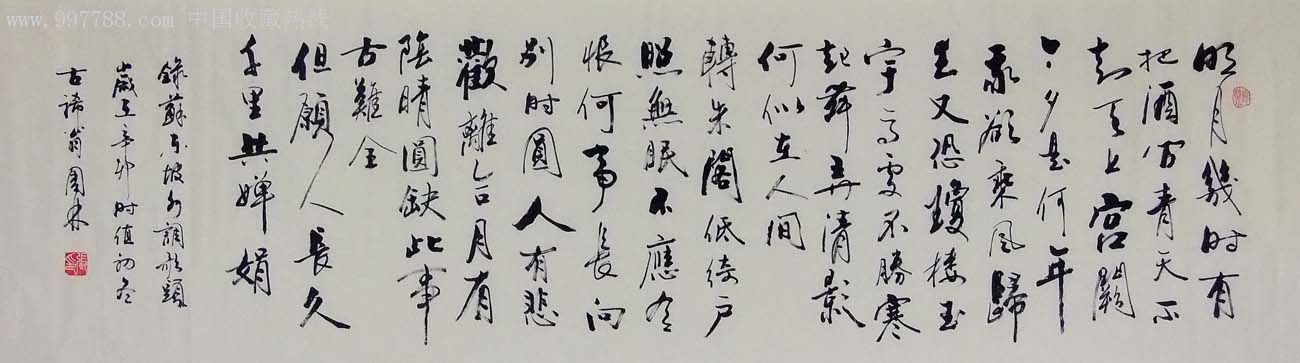 www.997788.com 中国收藏热线
明月幾时有
把酒问青天不
知天上宫闕
今夕是何年
我欲乘风歸
去又恐瓊楼玉
宇高處不勝寒
起舞弄清影
何似在人间
轉朱閣低绮户
照無眠不應有
恨何事長向
别时圓人有悲
歡離合月有
陰晴圓缺此事
古難全
但願人長久
千里共婵娟
錄蘇东坡水調歌頭
歲在辛卯时值初冬
古翁周